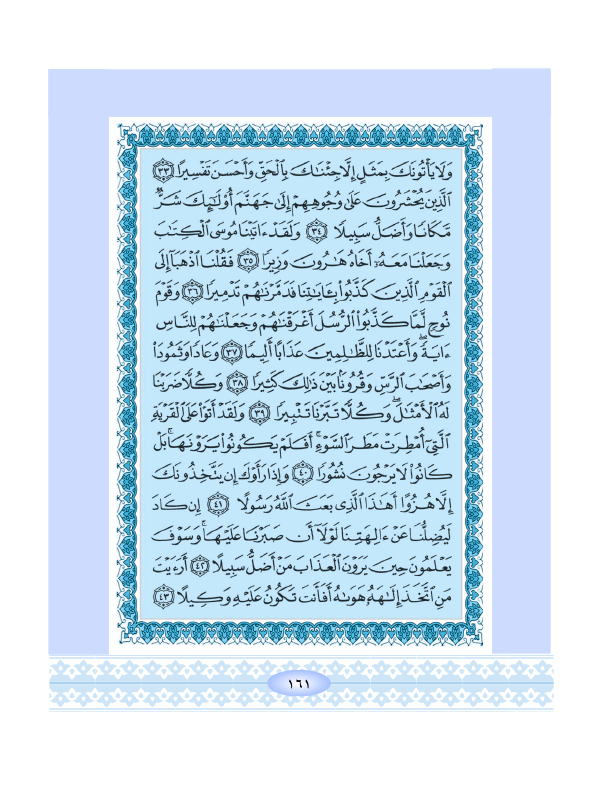 وَلَا يَأْتُونَكَ بِمَثَلٍ إِلَّا جِئْنَٰكَ بِٱلْحَقِّ وَأَحْسَنَ تَفْسِيرًا ٣٣
ٱلَّذِينَ يُحْشَرُونَ عَلَىٰ وُجُوهِهِمْ إِلَىٰ جَهَنَّمَ أُو۟لَٰٓئِكَ شَرٌّ
مَّكَانًا وَأَضَلُّ سَبِيلًا ٣٤ وَلَقَدْ ءَاتَيْنَا مُوسَى ٱلْكِتَٰبَ
وَجَعَلْنَا مَعَهُۥٓ أَخَاهُ هَٰرُونَ وَزِيرًا ٣٥ فَقُلْنَا ٱذْهَبَآ إِلَى
ٱلْقَوْمِ ٱلَّذِينَ كَذَّبُوا۟ بِـَٔايَٰتِنَا فَدَمَّرْنَٰهُمْ تَدْمِيرًا ٣٦ وَقَوْمَ
نُوحٍ لَّمَّا كَذَّبُوا۟ ٱلرُّسُلَ أَغْرَقْنَٰهُمْ وَجَعَلْنَٰهُمْ لِلنَّاسِ
ءَايَةً ۖ وَأَعْتَدْنَا لِلظَّٰلِمِينَ عَذَابًا أَلِيمًا ٣٧ وَعَادًا وَثَمُودَا۟
وَأَصْحَٰبَ ٱلرَّسِّ وَقُرُونًۢا بَيْنَ ذَٰلِكَ كَثِيرًا ٣٨ وَكُلًّا ضَرَبْنَا
لَهُ ٱلْأَمْثَٰلَ ۖ وَكُلًّا تَبَّرْنَا تَتْبِيرًا ٣٩ وَلَقَدْ أَتَوْا۟ عَلَى ٱلْقَرْيَةِ
ٱلَّتِىٓ أُمْطِرَتْ مَطَرَ ٱلسَّوْءِ ۚ أَفَلَمْ يَكُونُوا۟ يَرَوْنَهَا ۚ بَلْ
كَانُوا۟ لَا يَرْجُونَ نُشُورًا ٤٠ وَإِذَا رَأَوْكَ إِن يَتَّخِذُونَكَ
إِلَّا هُزُوًا أَهَٰذَا ٱلَّذِى بَعَثَ ٱللَّهُ رَسُولًا ٤١ إِن كَادَ
لَيُضِلُّنَا عَنْ ءَالِهَتِنَا لَوْلَآ أَن صَبَرْنَا عَلَيْهَا ۚ وَسَوْفَ
يَعْلَمُونَ حِينَ يَرَوْنَ ٱلْعَذَابَ مَنْ أَضَلُّ سَبِيلًا ٤٢ أَرَءَيْتَ
مَنِ ٱتَّخَذَ إِلَٰهَهُۥ هَوَىٰهُ أَفَأَنتَ تَكُونُ عَلَيْهِ وَكِيلًا ٤٣
١٦١